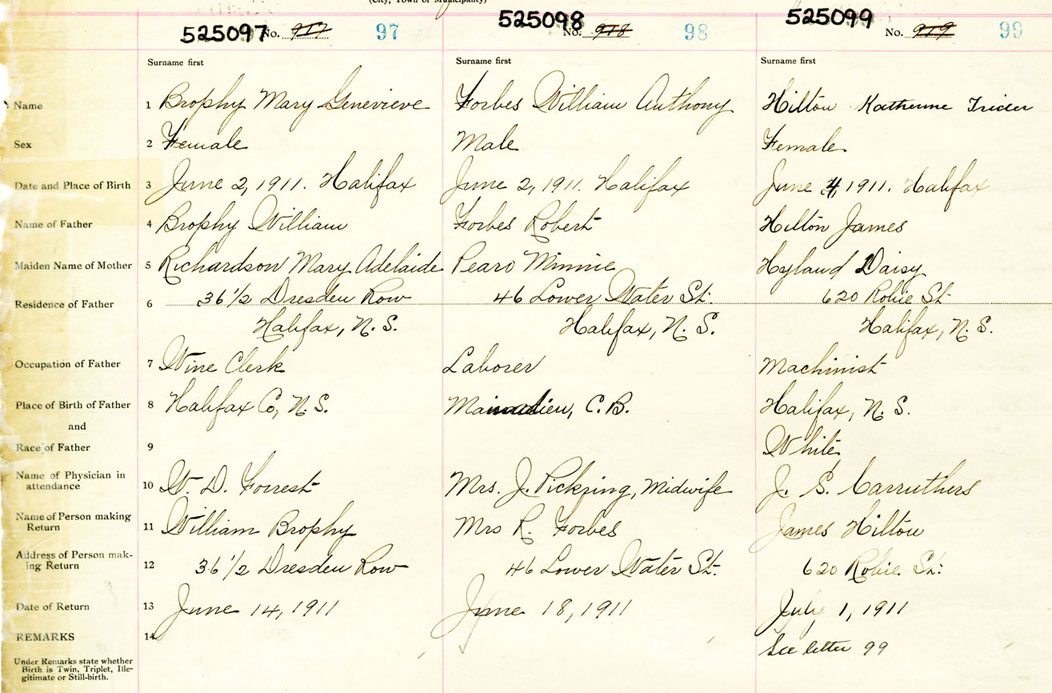 (City, Town or Municipality)
525097 No. 917 97
525098 No. 918 98
525099 No. 919 99
Surname first Surname first Surname first
Name 1 Brophy Mary Genevieve Forbes William Anthony Hilton Katherine Trider
Sex 2 Female Male Female
Date and Place of Birth 3 June 2, 1911. Halifax June 2, 1911. Halifax June 4, 1911. Halifax
Name of Father 4 Brophy William Forbes Robert Hilton James
Maiden Name of Mother 5 Richardson Mary Adelaide Pearo Minnie Hyland Daisy
Residence of Father 6 36 1/2 Dresden Row 46 Lower Water St. 620 Robie St.
Halifax, N. S. Halifax, N. S. Halifax, N. S.
Occupation of Father 7 Wine Clerk Laborer Machinist
Place of Birth of Father 8 Halifax Co, N. S. C. B. Halifax, N. S.
and
Race of Father 9 White
Name of Physician in attendance 10 W. D. Forrest Mrs. J. Pickring, Midwife J. S. Carruthers
Name of Person making Return 11 William Brophy Mrs R. Forbes James Hilton
Address of Person mak-ing Return 12 36 1/2 Dresden Row 46 Lower Water St. 620 Robie St.
Date of Return 13 June 14, 1911 June 18, 1911 July 1, 1911
REMARKS 14 See letter 99
Under Remarks state whether
Birth is Twin, Triplet, Ille-
gitimate or Still-birth.